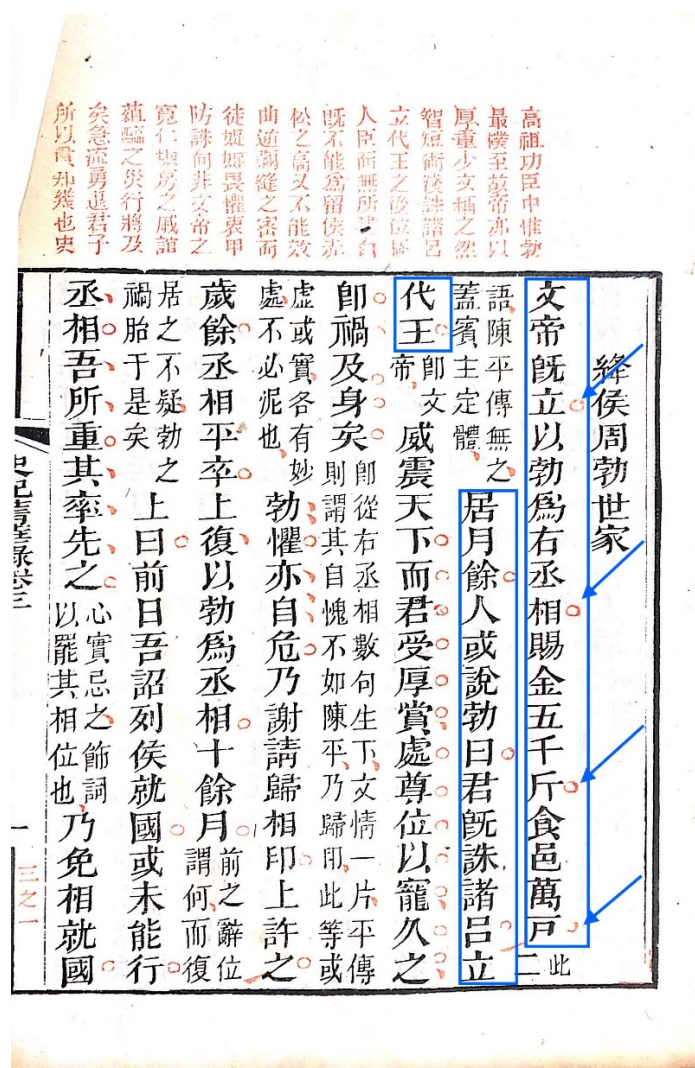 高祖功臣中惟勃
最至帝亦以
厚重少文稱之然
智短術淺誅諸呂
立代王之後位極
人臣而無所建白
既不能爲留侯赤
松之高又不能效
曲逆彌縫之密而
徒娖娖畏懼衷甲
防誅向非文帝之
寬仁椒房之戚誼
菹醢之災行將及
矣急流勇退君子
所以貴知幾也史
絳侯周勃世家
文帝旣立以勃爲右丞相賜金五千斤食邑萬戸此二
語陳平傳無之蓋賓主定體居月餘人或說勃曰君旣誅諸呂立
代王卽文帝威震天下而君受厚賞處尊位以寵久之
卽禍及身矣卽從右丞相數句生下文情一片平傳則謂其自愧不如陳平乃歸印此等或
虛或實各有妙處不必泥也勃懼亦自危乃謝請歸相印上許之
歲餘丞相平卒上復以勃爲丞相十餘月前之辭位謂何而復
居之不疑勃之禍胎于是矣上曰前日吾詔列侯就國或未能行
丞相吾所重其率先之心實忌之飾詞以罷其相位也乃免相就國
史記菁華錄卷三
一
三之一